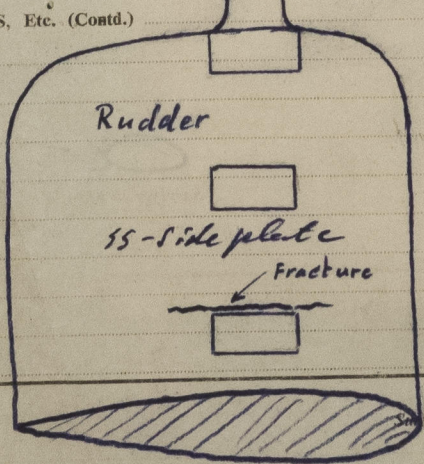 S, Etc. (Contd.)
Rudder
SS-Side plate
Fracture